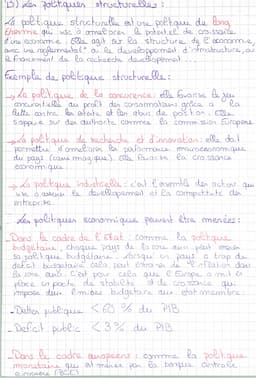 B) Les politiques structurelles :
La politique structurelle est une politique de long
terme qui vise à améliorer le potentiel de croissance
d'une économie. Elle agit sur la structure de l'économie,
avec la réglementat° ou le développement d'infrastructure, ou
le financement de la recherche développement.
Exemple de politique structurelle :
→ La politique de la concurrence : elle favorise le jeu
concurrentiel au profit des consommateurs grâce à la
lutte contre les et les abus de position. Elle
s'appuie sur des autorités comme la commission Européenne.
→ La politique de recherche et d'innovation : elle doit
permettre d'améliorer les performances macroéconomique
du pays. Elle favorise la croissance
économique.
→ La politique industrielle : c'est l'ensemble des actions qui
vise à favoriser le développement et la compétitivité des
entreprise.
Les politiques économique peuvent être menées :
- Dans le cadre de l'État : comme la politique
budgétaire, chaque pays de la zone euro peut mener
sa politique budgétaire. Lorsqu'un pays a trop de
déficit budgétaire cela peut entraîner de l'inflation dans
la zone euro. C'est pour cela que l'Europe a mit en
place un pacte de stabilité et de croissance qui
impose des limites budgétaire aux état membre.
- Dettes publique < 60 % du PIB
- Déficit public < 3 % du PIB
- Dans le cadre européens : comme la politique
monétaire qui est menée par la banque centrale
européenne (BCE)